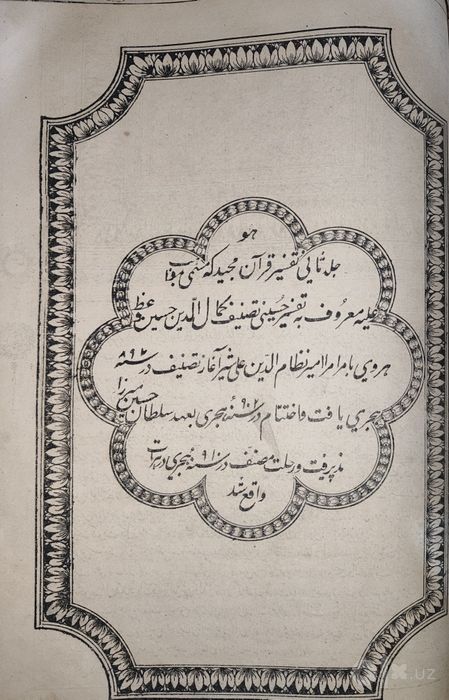 هو
جلد ثانی تفسیر قرآن مجید که مسمی بمواهب
علیه معروف به تفسیر حسینی تصنیف کمال الدین حسین واعظ
هروی بامر امیر نظام الدین علی شیر آغاز تصنیف در سنه ۸۹۷
هجری یافت و اختتام در سنه ۹۰۲ هجری بعهد سلطان حسین میرزا
پذیرفت و رحلت مصنف در سنه ۹۱۰ هجری در هرات
واقع شد
.uz